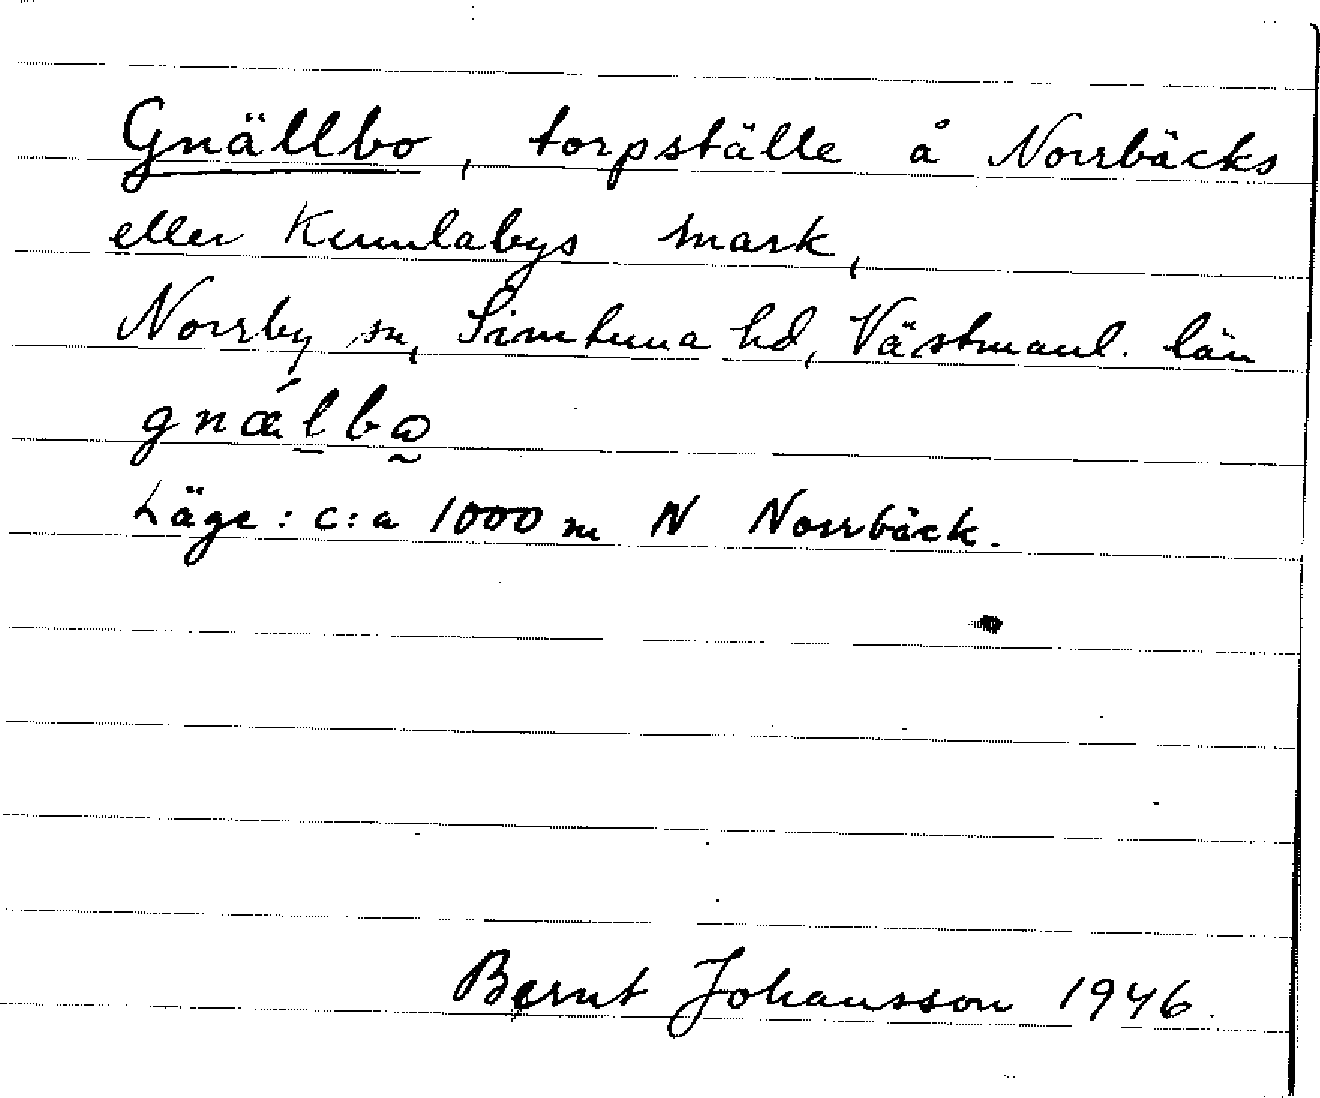 Gnällbo, torpställe å Norrbäcks
eller Kumlabys mark,
Norrby sn, Simtuna hd, Västmanl. län
gnǽl̠bω̰
Läge: c:a 1000 m N Norrbäck.
Bernt Johansson 1946.